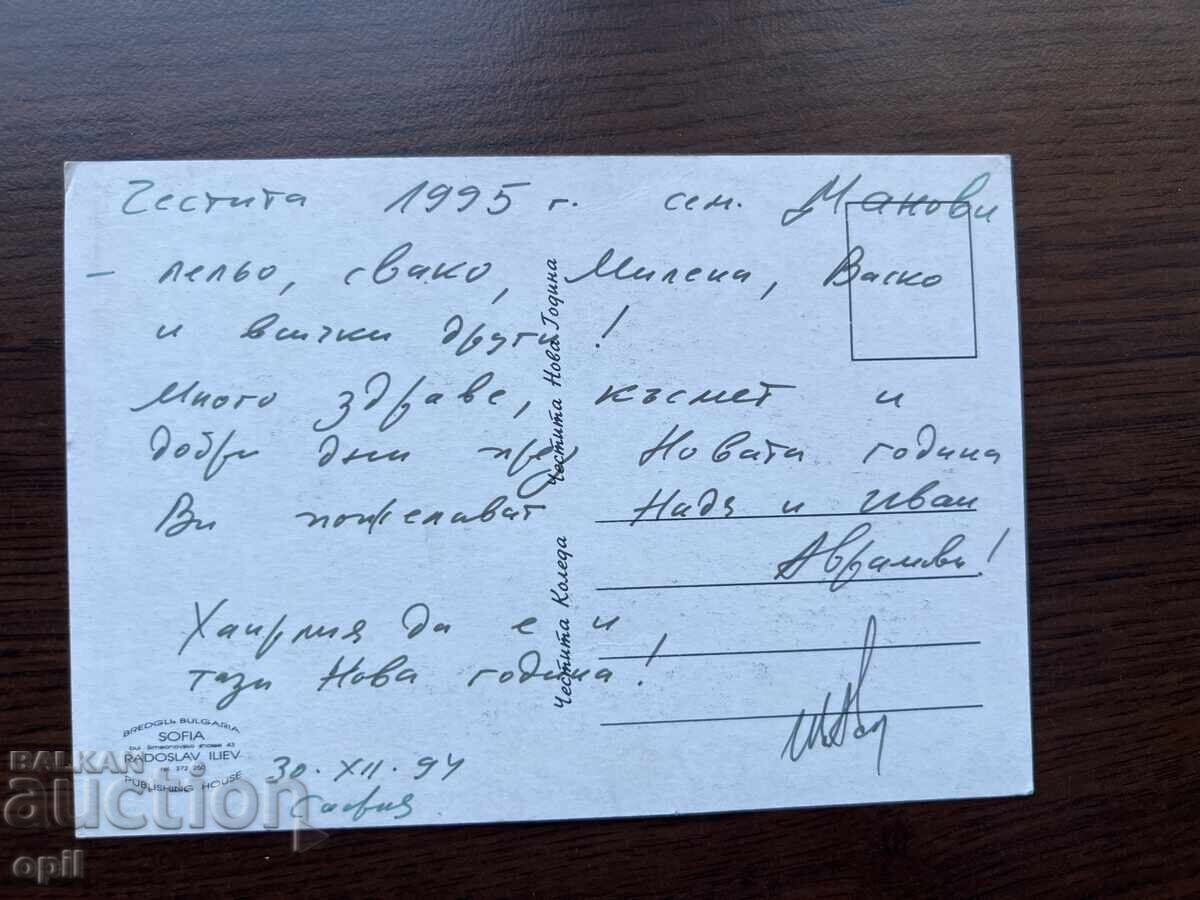 Честита 1995 г. сем. Манови
– лельо, свако, Милена, Васко
и всички други!
Много здраве, късмет и
добри дни през Новата година
Ви пожелават Надя и Иван
Аврамови!
Хаирлия да е и
тази Нова година!
30.XII.94
София
Честита Коледа Честита Нова Година
BREDGLЬ BULGARIA
SOFIA
bul. Simeonovsko shosse 43
RADOSLAV ILIEV
tel. 372 250
PUBLISHING HOUSE
BALKAN
auction
opil